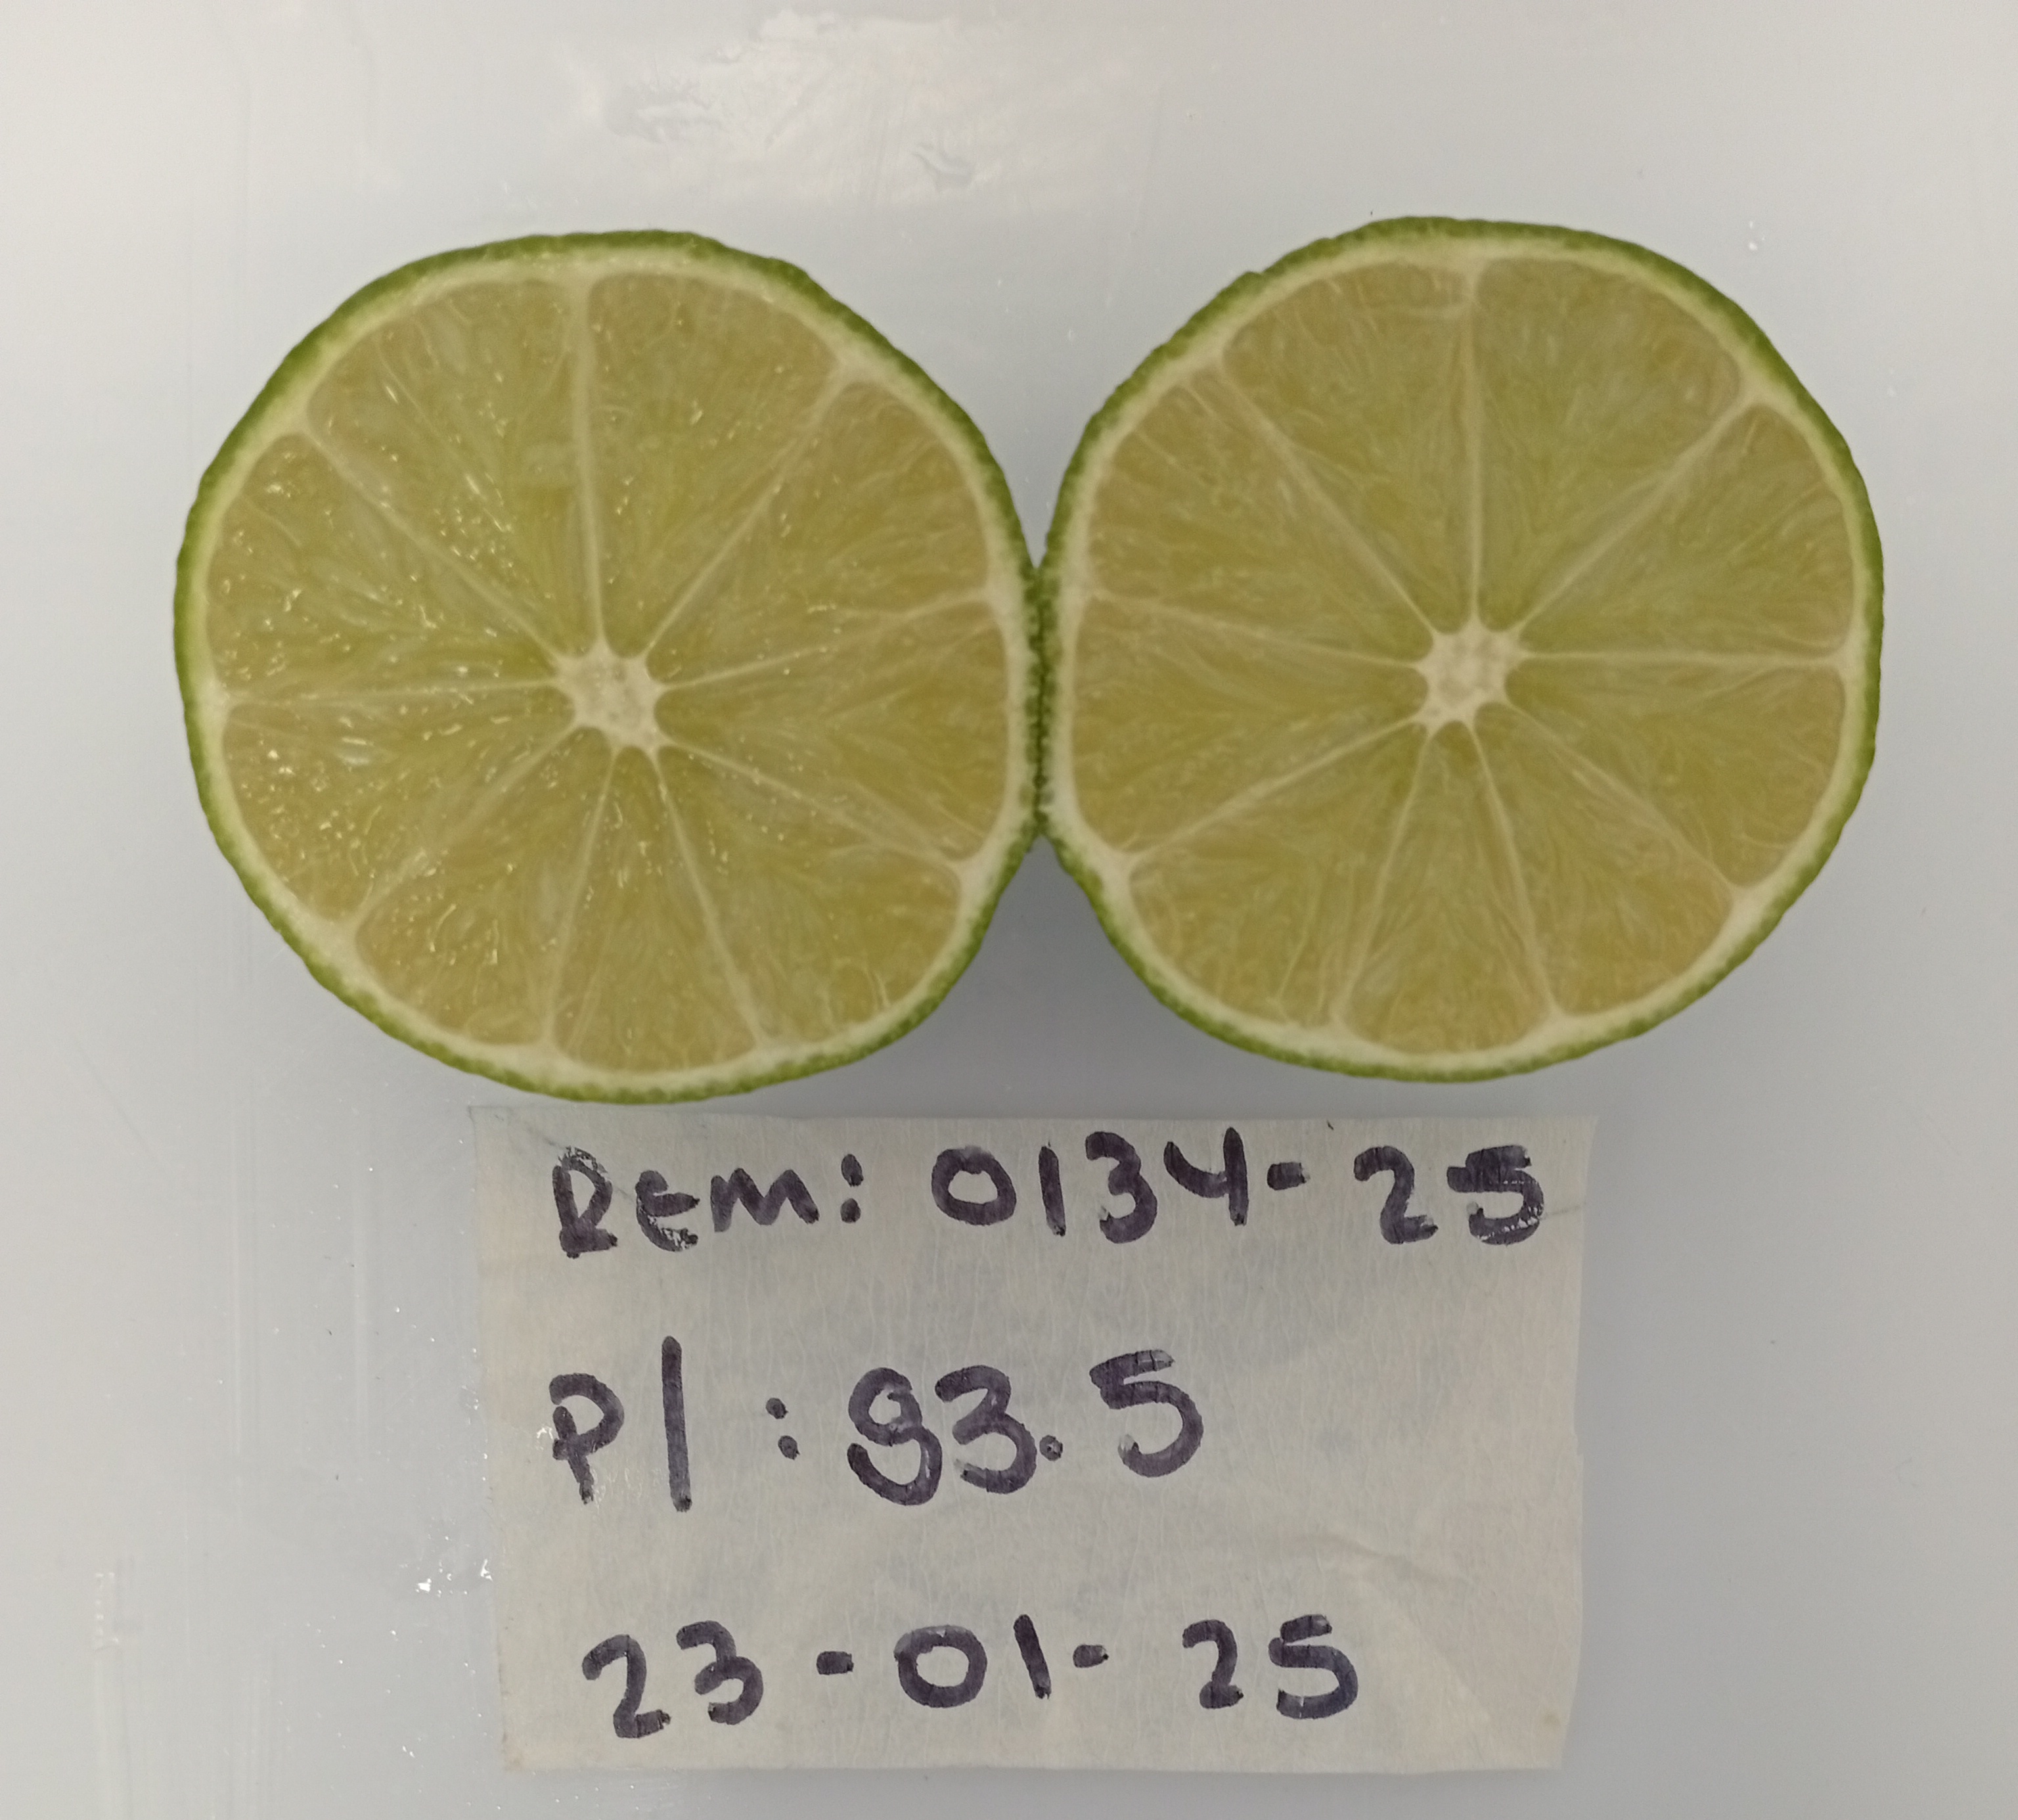 Rem: 0134-25
P/ : 93.5
23-01-25